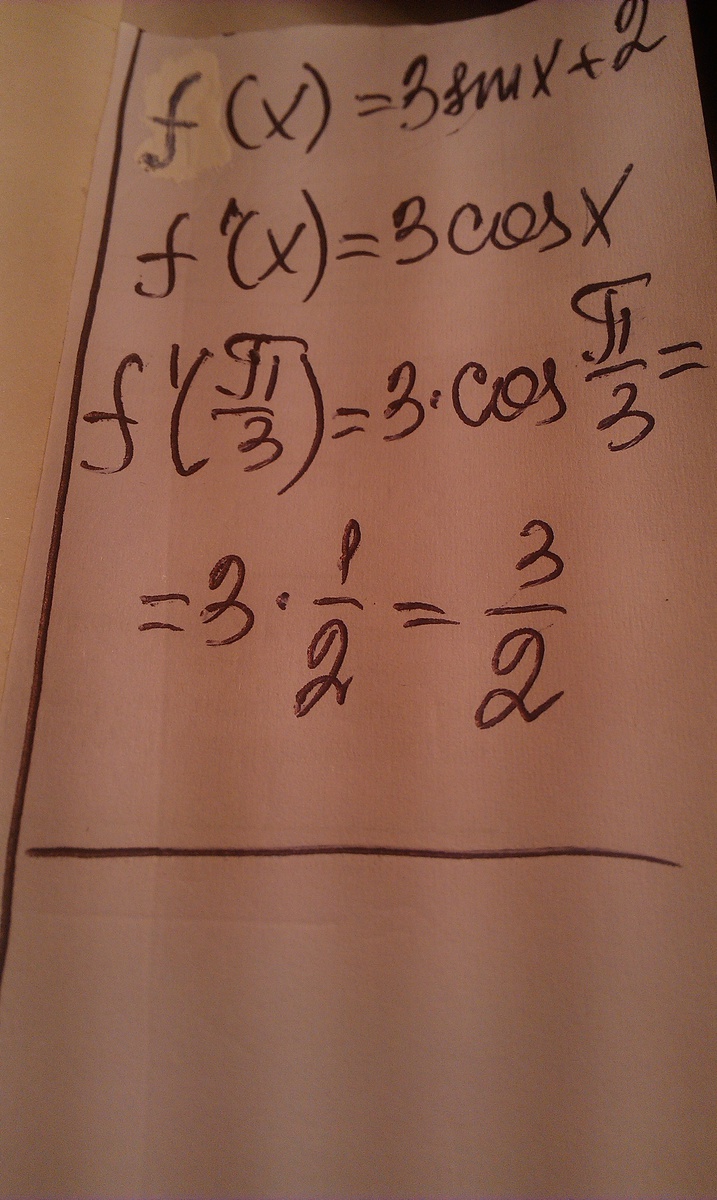 f(x) = 3sinx + 2
f'(x) = 3cosx
f'(π/3) = 3·cos π/3 =
= 3 · 1/2 = 3/2